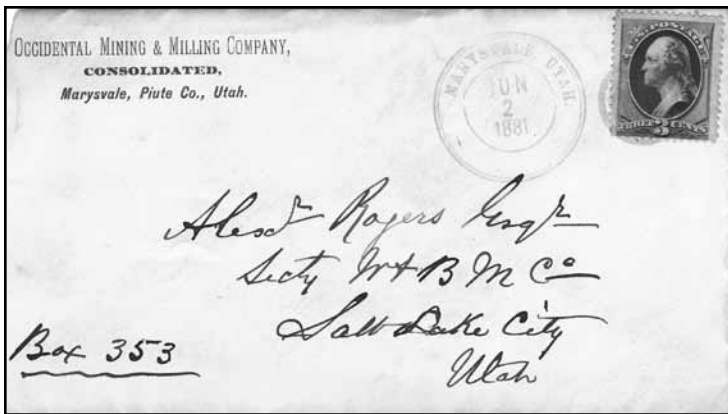 OCCIDENTAL MINING & MILLING COMPANY,
CONSOLIDATED,
Marysvale, Piute Co., Utah.
MARYSVALE, UTAH.
JUN
2
1881
U.S. POSTAGE
THREE 3 CENTS
Alexdr Rogers Esqr
Secty W & B M Co
Salt Lake City
Utah
Box 353